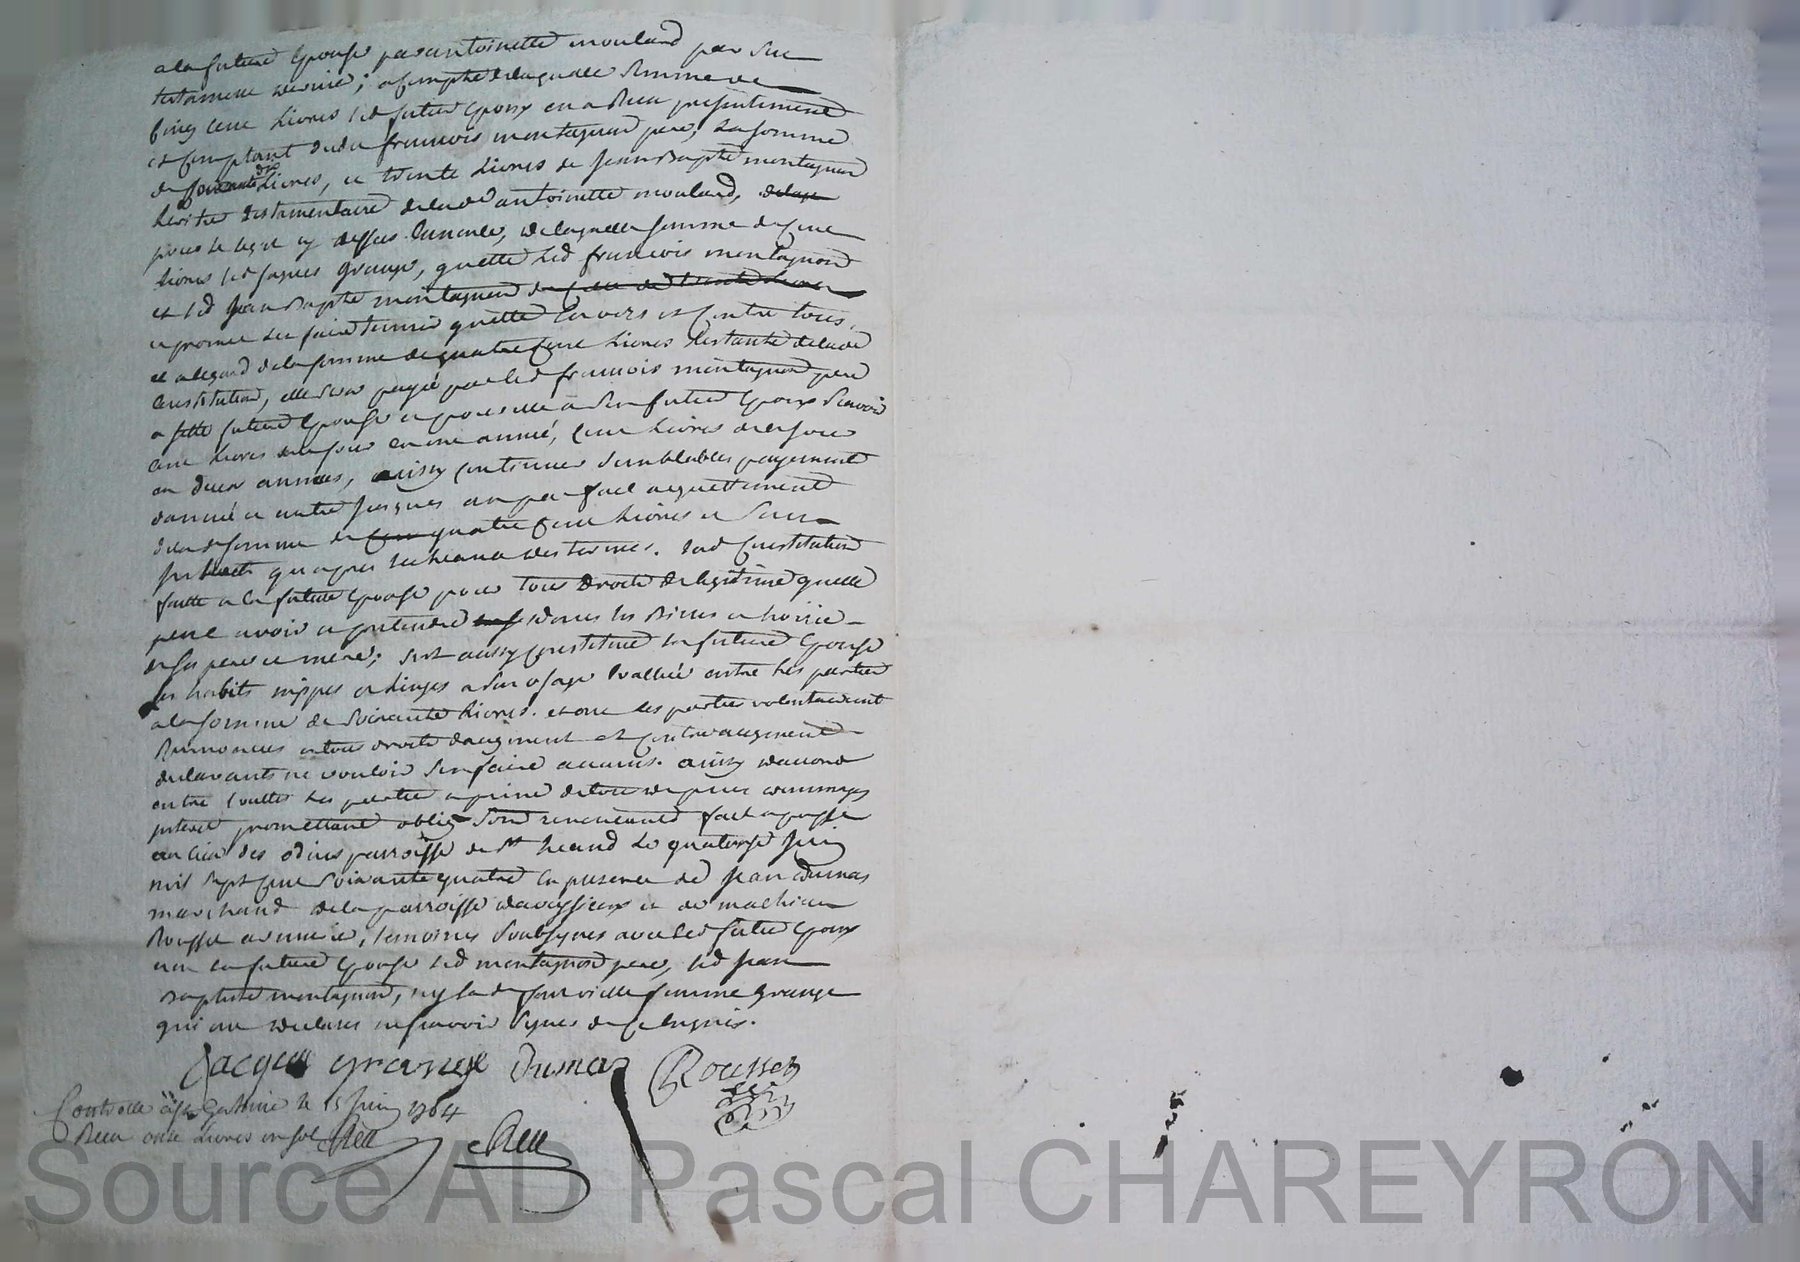 a la future Epouse par antoinette moulard par son
testament dernier; a compte de laquelle somme de
Cinq cent Livres led futur Epoux en a Receu presentement
et comptant dudit francois montagnon pere, la somme
de soixante dix Livres, et trente Livres de Jean Baptte montagnon
heritier testamentaire de lade antoinette moulard,
pour le legat cy dessus Enoncé, de laquelle somme de Cent
Livres led Jaques Grange, quitte led francois montagnon
et led Jean Baptte montagnon
et promet len faire tenir quitte Envers et Contre tous,
et a legard de la somme de quatre Cent Livres Restante de lade
Constitution, elle sera payée par led francois montagnon pere
a cette future Epouse et pour elle a son futur Epoux scavoir
Cent Livres dans ce jour en une année, Cent Livres de ce jour
en deux années, ainsy continuer semblables payement
dannée a autre jusques au parfait acquittement
de lade somme de quatre Cent Livres et sans
interests qu apres lecheance des termes. lade Constitution
faitte a la future Epouse pour tous droits de legitime quelle
peut avoir et pretendre dans les Biens et hoirie
de ses pere et mere; sest aussy constituée la future Epouse
ses habits nippes et Linges a son usage Evallués entre les parties
a la somme de soixante Livres. et ont les parties volontairement
Renoncées a tous droits daugment et contraugment
declarants ne vouloir sen faire aucuns. ainsy daccord
entre touttes les parties a peine de tous depens dommages
interest promettant oblig sond renonceant fait et passé
au lieu des odins parroisse de St heand le quatorze Juin
mil sept cent soixante quatre En presence de Jean Dumas
marchand de la parroisse daveysieux et de mathieu
Rousset temoins soubsignes avec led futur Epoux
non la future Epouse led montagnon pere, led Jean
Baptiste montagnon, ny lade femme Grange
qui ont declarés ne scavoir signer de ce Enquis.
Jacque grange Dumas Rousset
Controllé a St Galmier le 15 Juin 1764
Receu onze Livres un sol
Source AD Pascal CHAREYRON